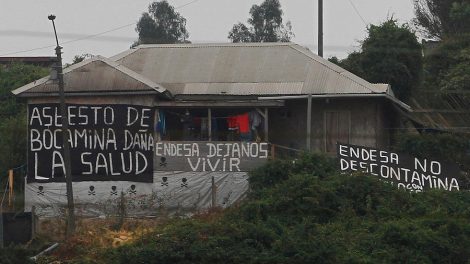 ASBESTO DE
BOCAMINA DAÑA
LA SALUD
ENDESA DEJANOS
VIVIR
ENDESA NO
DESCONTAMINA
CON